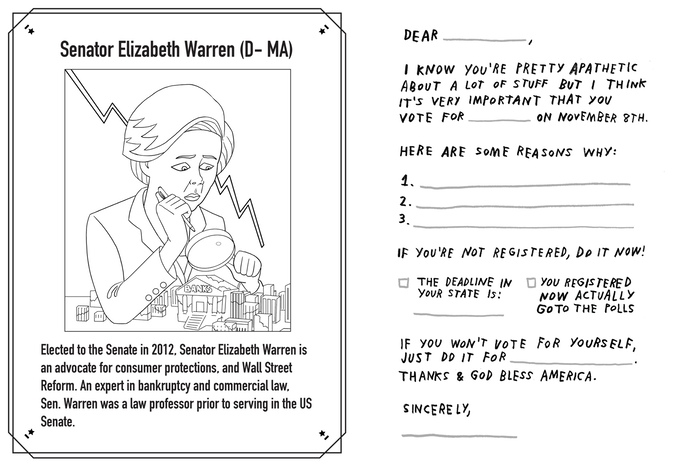 Senator Elizabeth Warren (D- MA)
BANKS
Elected to the Senate in 2012, Senator Elizabeth Warren is
an advocate for consumer protections, and Wall Street
Reform. An expert in bankruptcy and commercial law,
Sen. Warren was a law professor prior to serving in the US
Senate.
DEAR ,
I KNOW YOU'RE PRETTY APATHETIC
ABOUT A LOT OF STUFF BUT I THINK
IT'S VERY IMPORTANT THAT YOU
VOTE FOR ON NOVEMBER 8TH.
HERE ARE SOME REASONS WHY:
1.
2.
3.
IF YOU'RE NOT REGISTERED, DO IT NOW!
THE DEADLINE IN
YOUR STATE IS:
YOU REGISTERED
NOW ACTUALLY
GO TO THE POLLS
IF YOU WON'T VOTE FOR YOURSELF,
JUST DO IT FOR .
THANKS & GOD BLESS AMERICA.
SINCERELY,